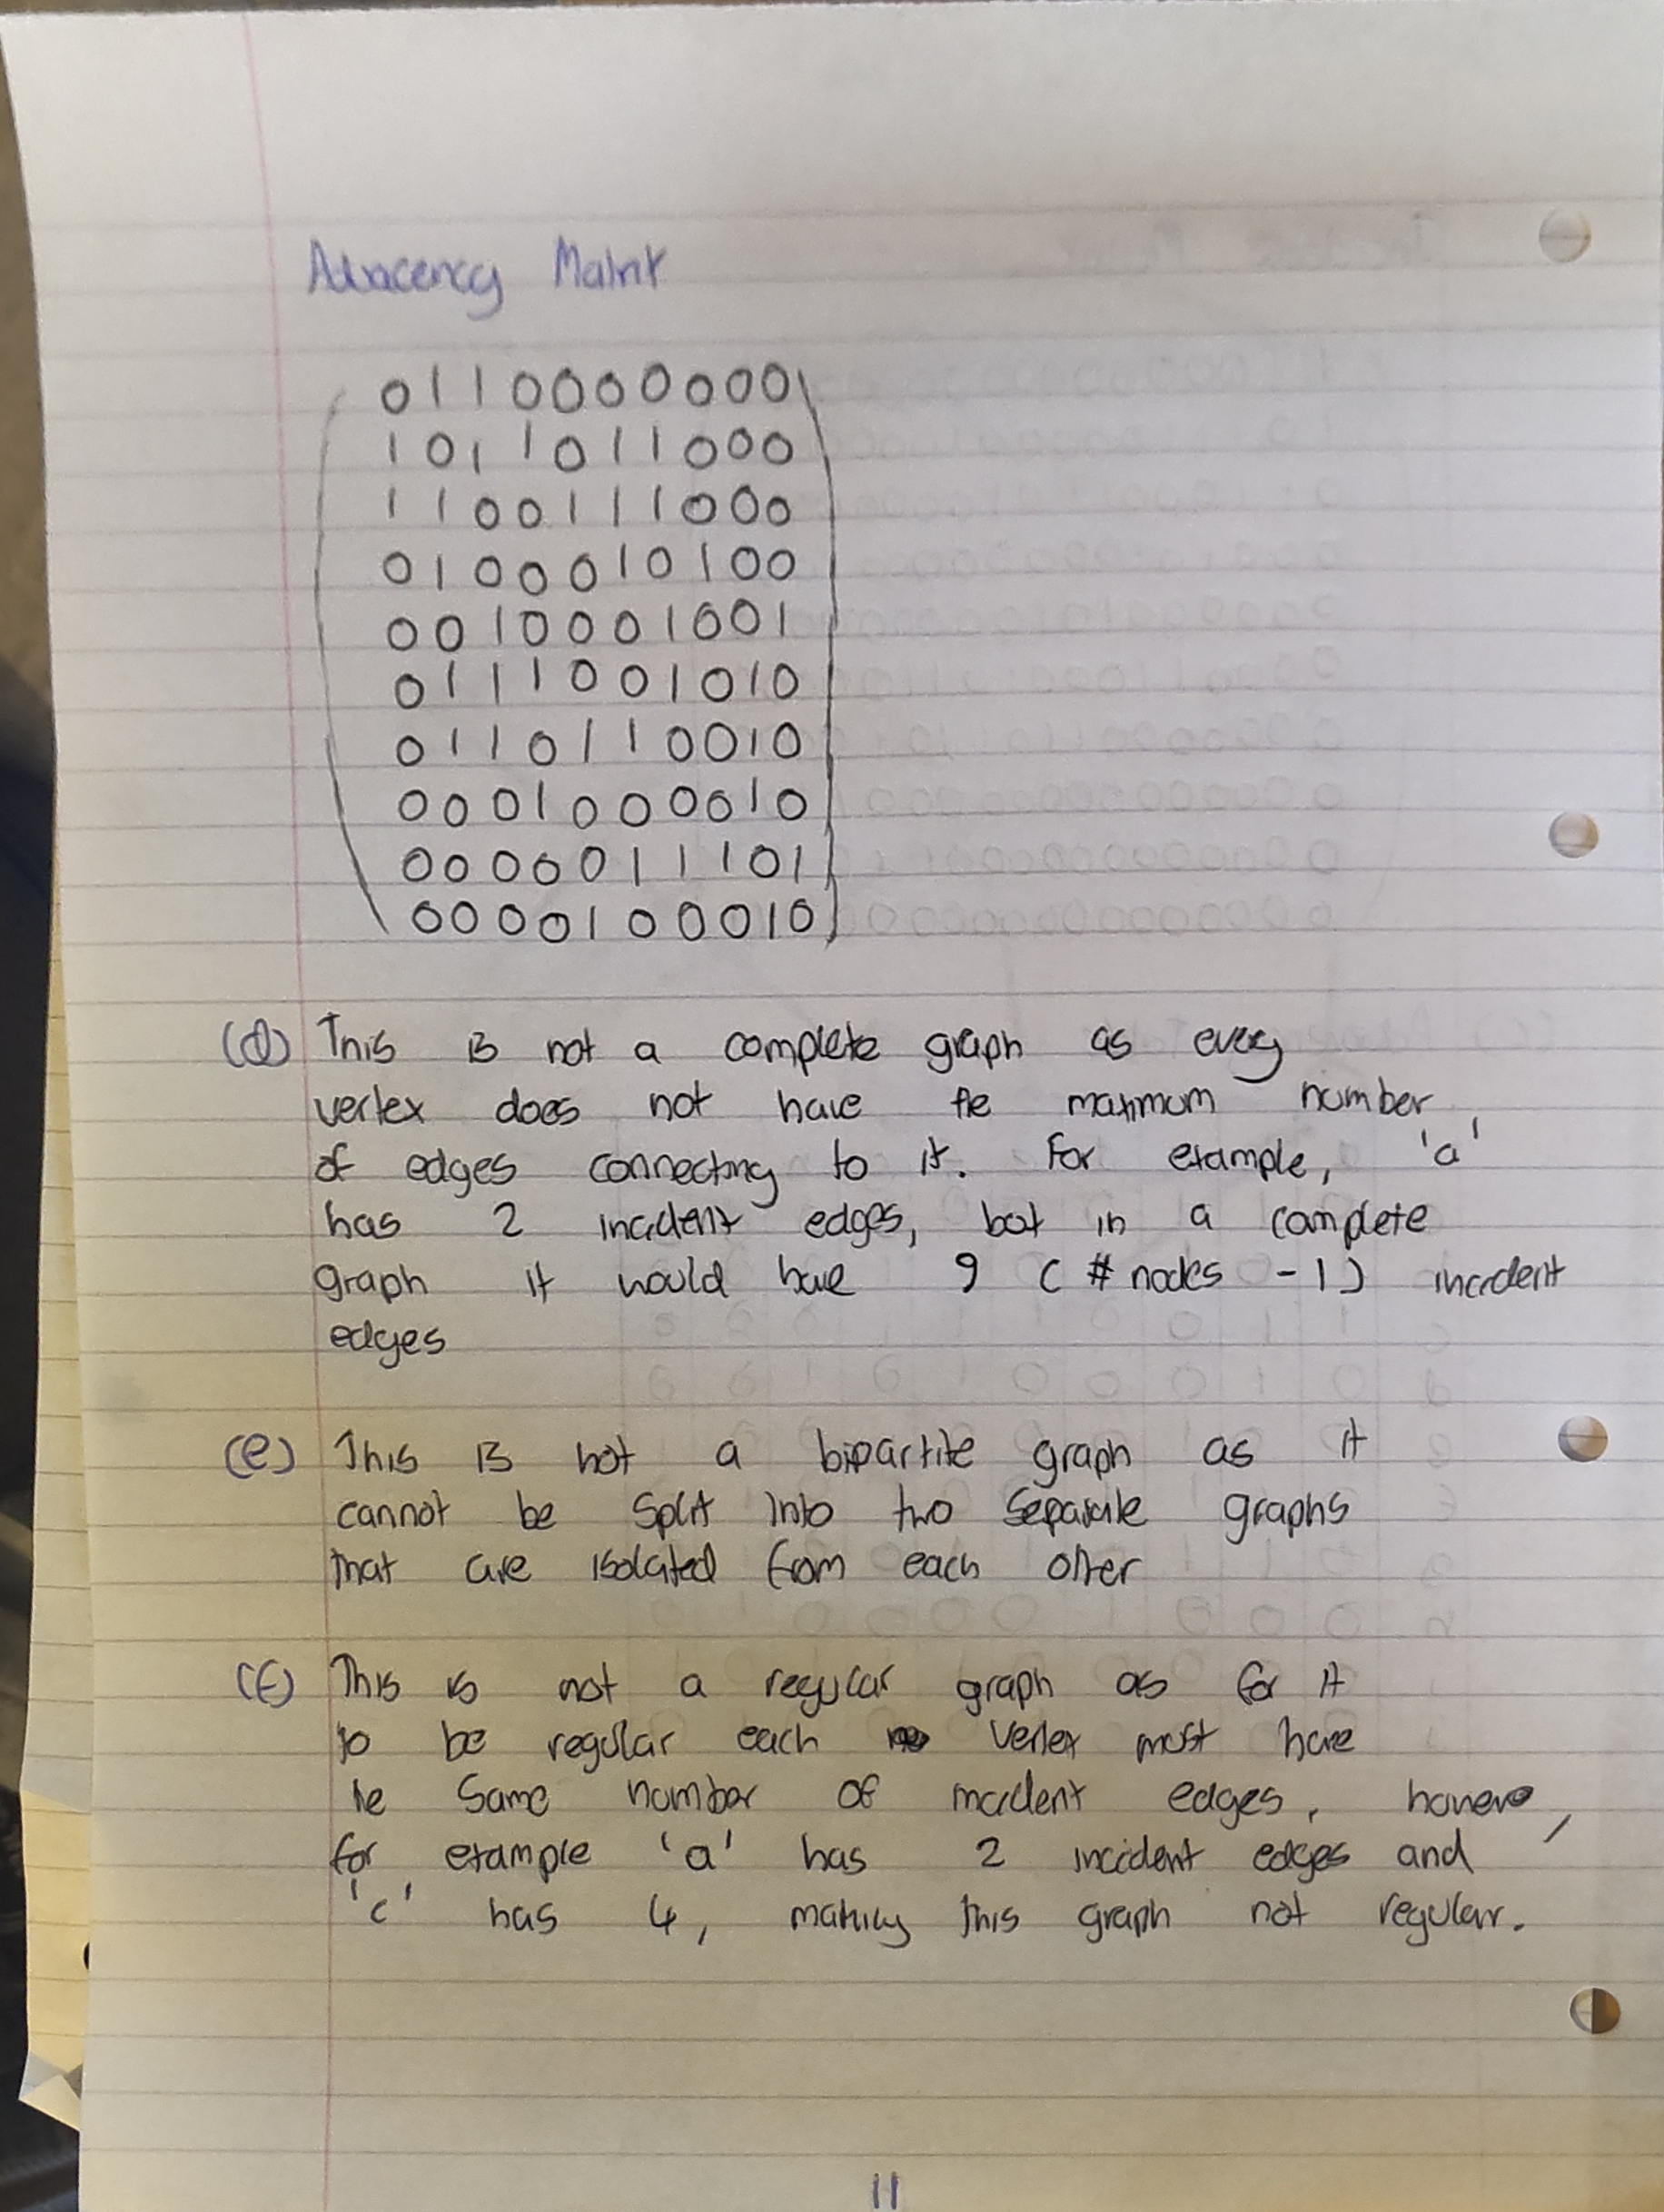 Adjacency Matrix
0110000000
1011011000
1100111000
0100010100
0010001001
0111001010
0110110010
0001000010
0000011101
0000100010
(d) This is not a complete graph as every
vertex does not have the maximum number
of edges connecting to it. For example, 'a'
has 2 incident edges, but in a complete
graph it would have 9 (# nodes -1) incident
edges
(e) This is not a bipartite graph as it
cannot be split into two separate graphs
that are isolated from each other
(f) This is not a regular graph as for it
to be regular each vertex must have
the same number of incident edges, however,
for example 'a' has 2 incident edges and
'c' has 4, making this graph not regular.
11